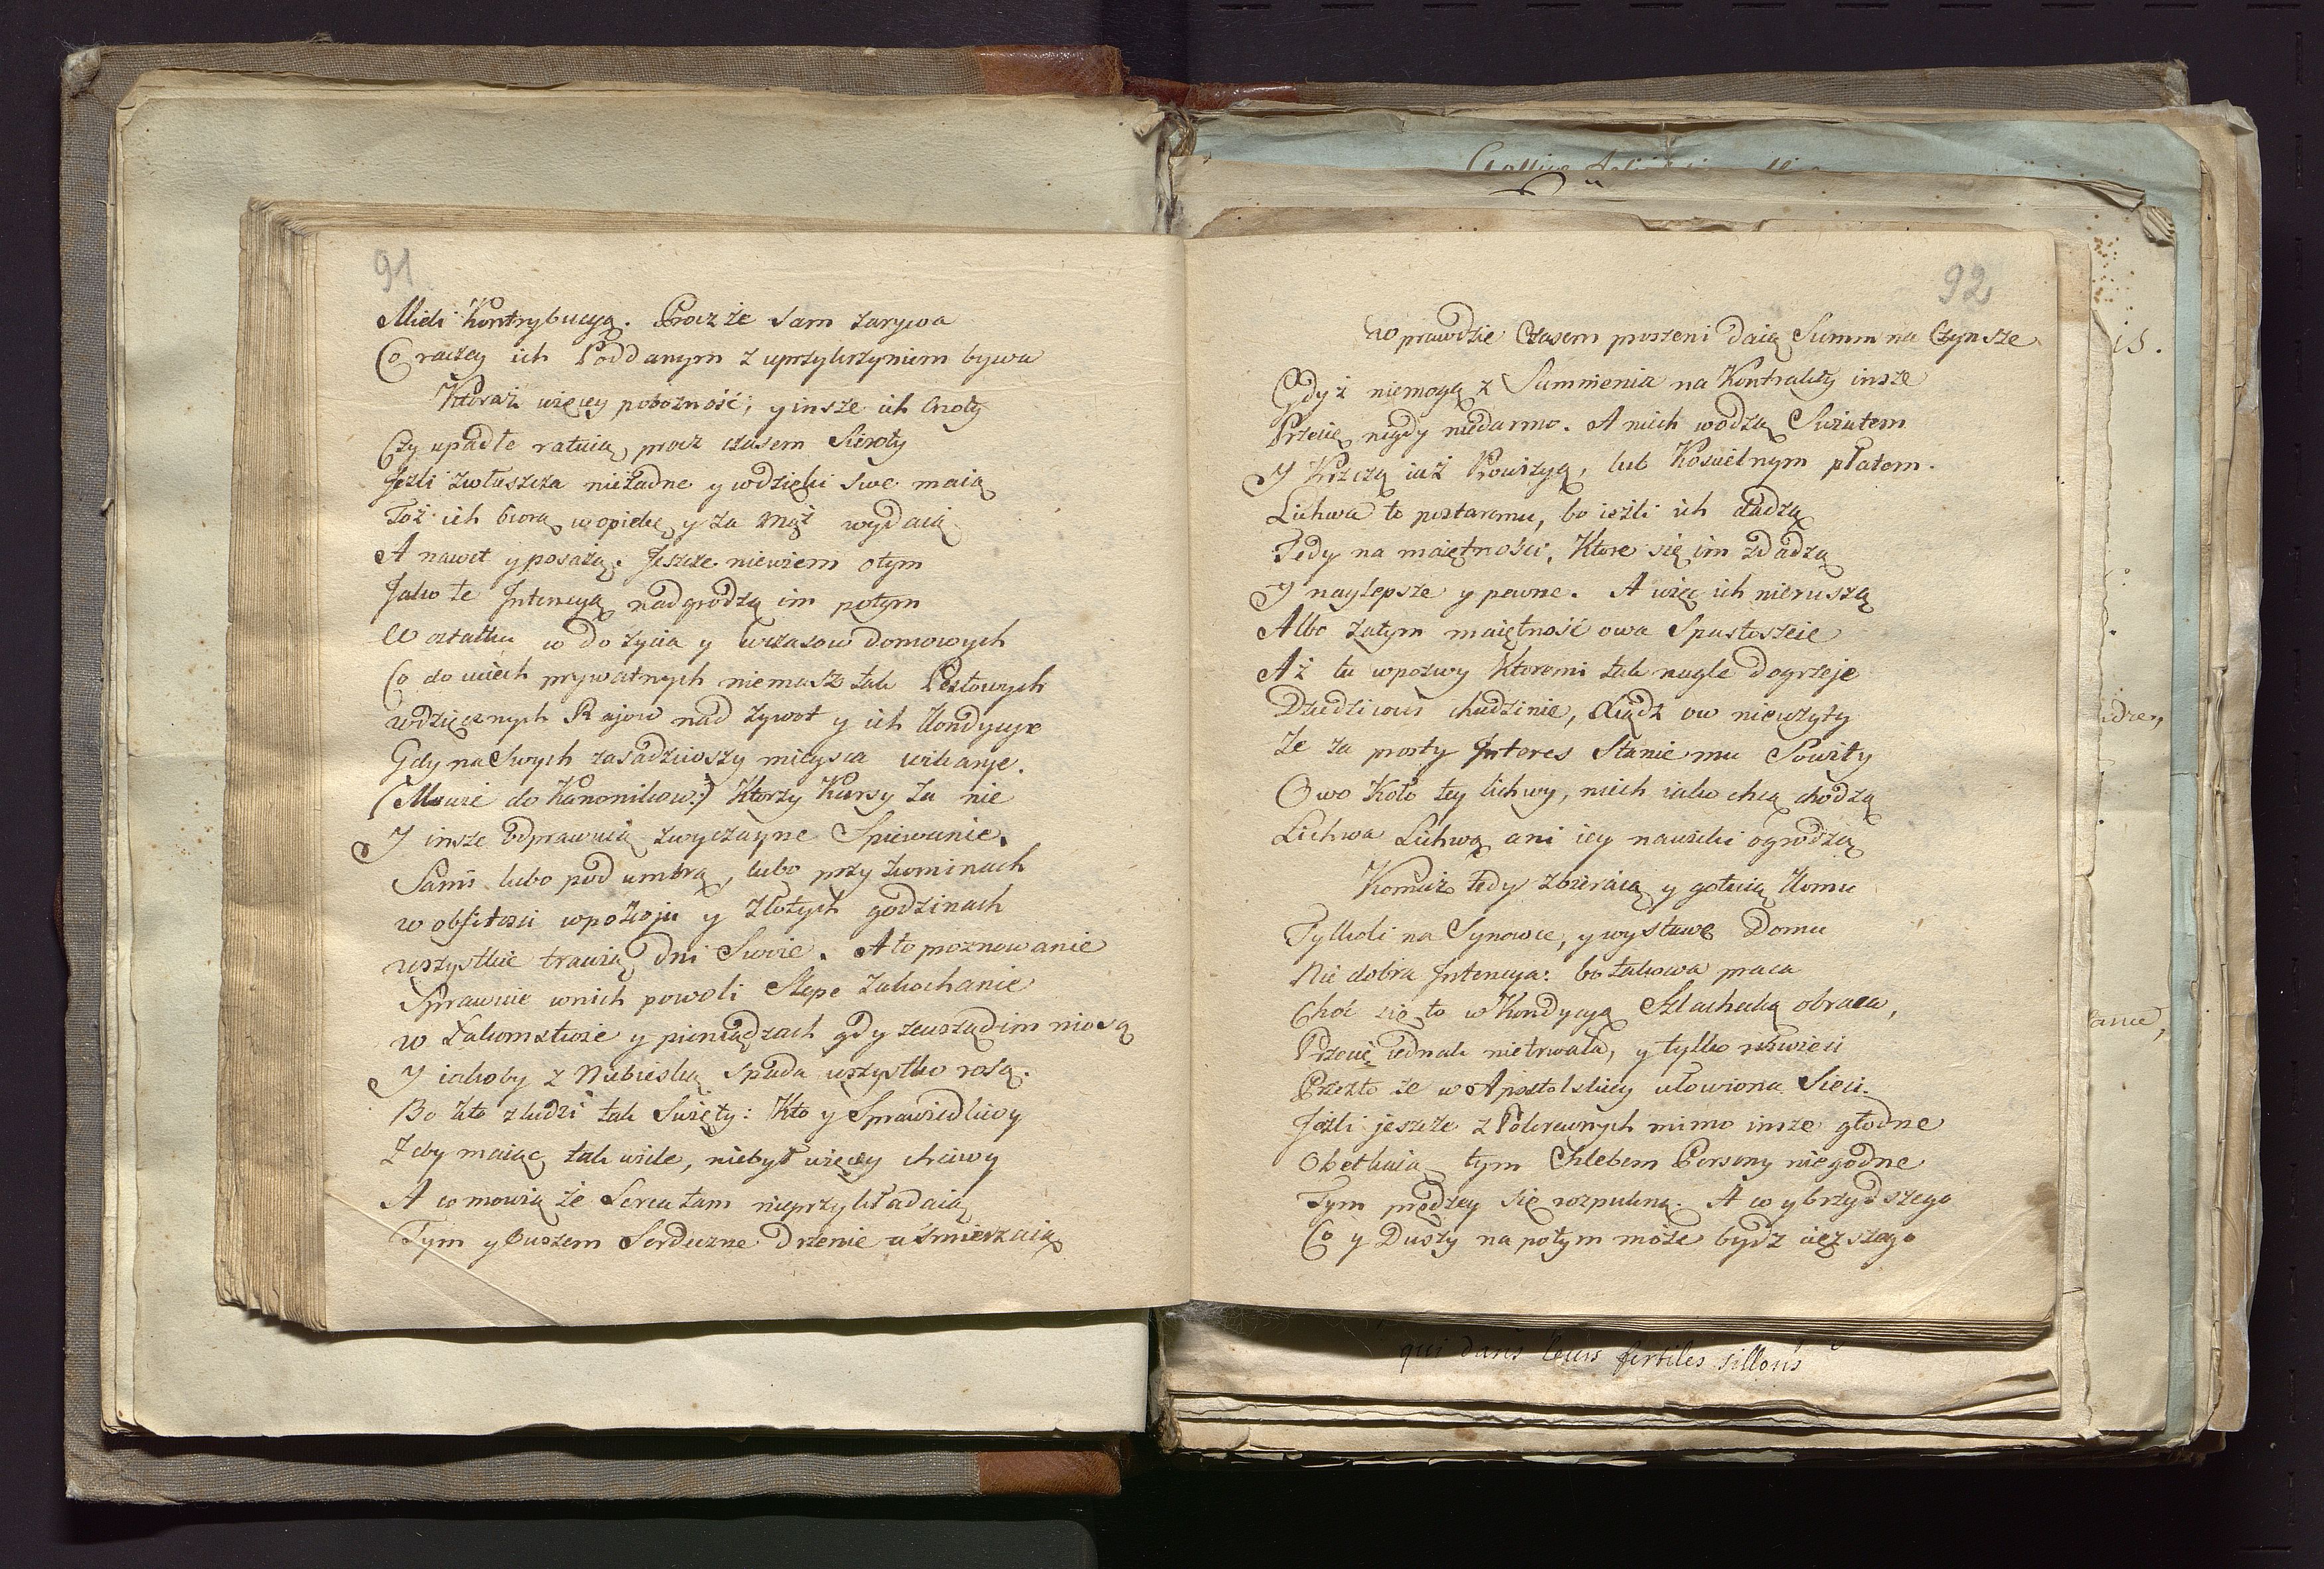 91
Mieli Kontrybucyą. Procz że sam zarywa
Co raczey ich Poddanym z uprzykrzyniem bywa
Ktoraż więcey pobożność, y insze ich Cnoty
Czy upadłe ratuią procz czasem Sieroty
Jeżli zwłaszcza nieładne y wdzięki swe maią
Toż ich biorą w opiekę y za Mąż wydaią
A nawet y posażą. Jeszcze niewiem o tym
Jako te Intencyą nadgrodzą im potym
W ostatku w do życia y wczasow domowych
Co do uciech prywatnych niemasz tak Pestowych
wdzięcznych Rajow nad żywot y ich Kondycye
Gdy na Swych zasadziwszy mieysca wikarye.
(Mowie do Kanonikow:) Ktorzy Kursy za nie
Y insze odprawuią zwyczayne Spiewanie.
Sami lubo pod umbrą, lubo przy kominach
w obfitosci w pokoju y złotych godzinach
wszystkie trawią dni Swoie. A to proznowanie
Sprawuie wnich powoli Slepe zakochanie
w Łakomstwie y pieniądzach gdy zewsząd im niosą
Y iakoby z Niebieską spada wszystko rosą.
Bo kto z ludzi tak Swięty: Kto y Sprawiedliwy
Zeby maiąc tak wiele, niebył więcey chciwy
A co mowią że Serca tam nieprzykładaią
Tym y Guszem Serdeczne drżenie uśmierzaią
92
w prawdzie Czasem proszeni daią Summ na Czynsze
Gdyż niemogą z Sumnienia na Kontrakty insze
Przecię nigdy niedarmo. A niech wodzą Swiatem
Y Krzczą iuż Prowizyą, lub Koscielnym płatem.
Lichwa to postaremu, bo ieżli ich dadzą
Tedy na maiętności, Ktore się im zdadzą
Y naylepsze y pewne. A więc ich nieruszą
Albo zatym maiętność owa Spustoszeie
Aż tu w pozwy Ktoremi tak nagle dogrzeje
Dziedzicowi chudzinie, Xiądz ow niewżyty
Że za prosty Interes Stanie mu Sowity
Owo Koło tey lichwy, niech iako chcą chodzą
Lichwa Lichwą ani iey nawieki ogrodzą
Komuż tedy zbieraią y gotuią Komu
Tylkoli na Synowce, y wystawę Domu
Nie dobra Intencya: bo takowa praca
Choć się to w Kondycyą Szlachecką obraca,
Przecię iednak nietrwała, y tylko w świeci
Przeto że w Apostolskiey ułowiona Sieci.
Jeżli jeszcze z Pokrewnych mimo insze głodne
Obetkaią tym Chlebem Persony niegodne
Tym prędzey się rozpukną. A co y brzydszego
Co y Duszy na potym może bydź cięższego
qui dans leurs fertiles sillons